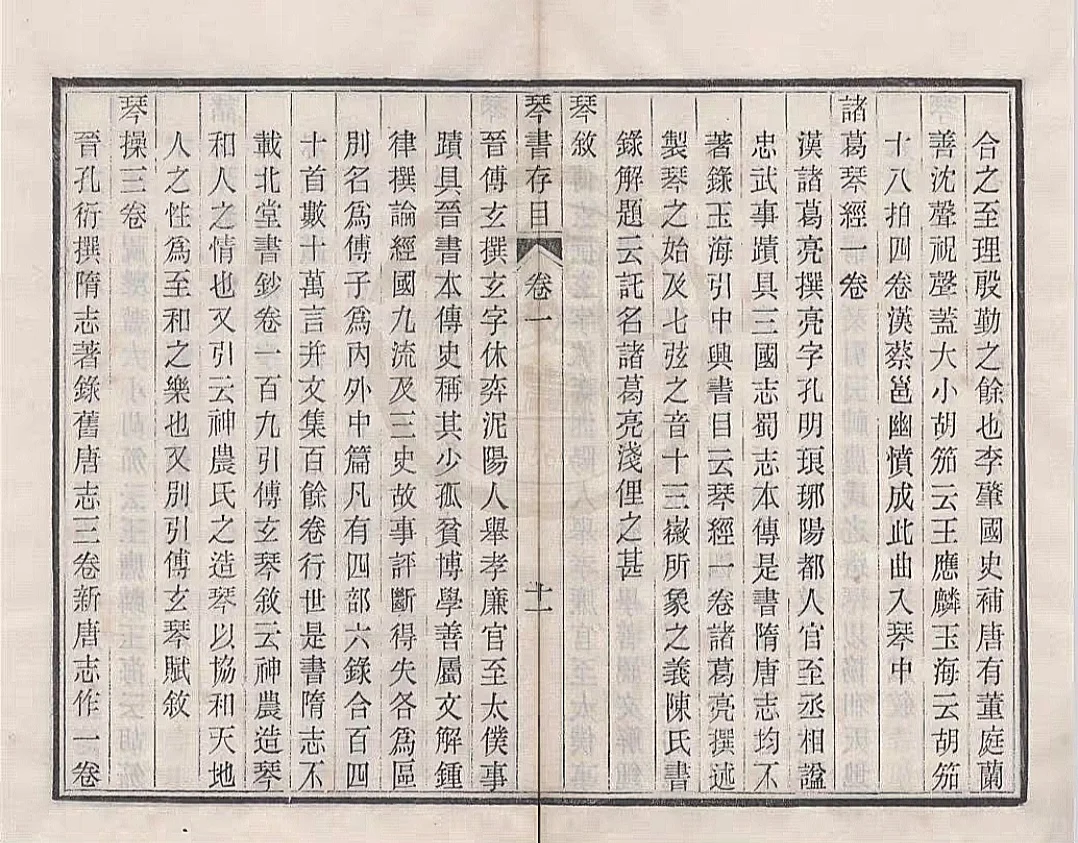 合之至理殷勤之餘也李肇國史補唐有董庭蘭
善沈聲祝聲蓋大小胡笳云王應麟玉海云胡笳
十八拍四卷漢蔡邕幽憤成此曲入琴中
諸葛琴經一卷
漢諸葛亮撰亮字孔明琅琊陽都人官至丞相諡
忠武事蹟具三國志蜀志本傳是書隋唐志均不
著錄玉海引中興書目云琴經一卷諸葛亮撰述
製琴之始及七弦之音十三徽所象之義陳氏書
錄解題云託名諸葛亮淺俚之甚
琴敘
琴書存目 卷一 十一
晉傅玄撰玄字休弈泥陽人舉孝廉官至太僕事
蹟具晉書本傳史稱其少孤貧博學善屬文解鍾
律撰論經國九流及三史故事評斷得失各爲區
別名爲傅子爲內外中篇凡有四部六錄合百四
十首數十萬言幷文集百餘卷行世是書隋志不
載北堂書鈔卷一百九引傅玄琴敘云神農造琴
和人之情也又引云神農氏之造琴以協和天地
人之性爲至和之樂也又別引傅玄琴賦敘
琴操三卷
晉孔衍撰隋志著錄舊唐志三卷新唐志作一卷